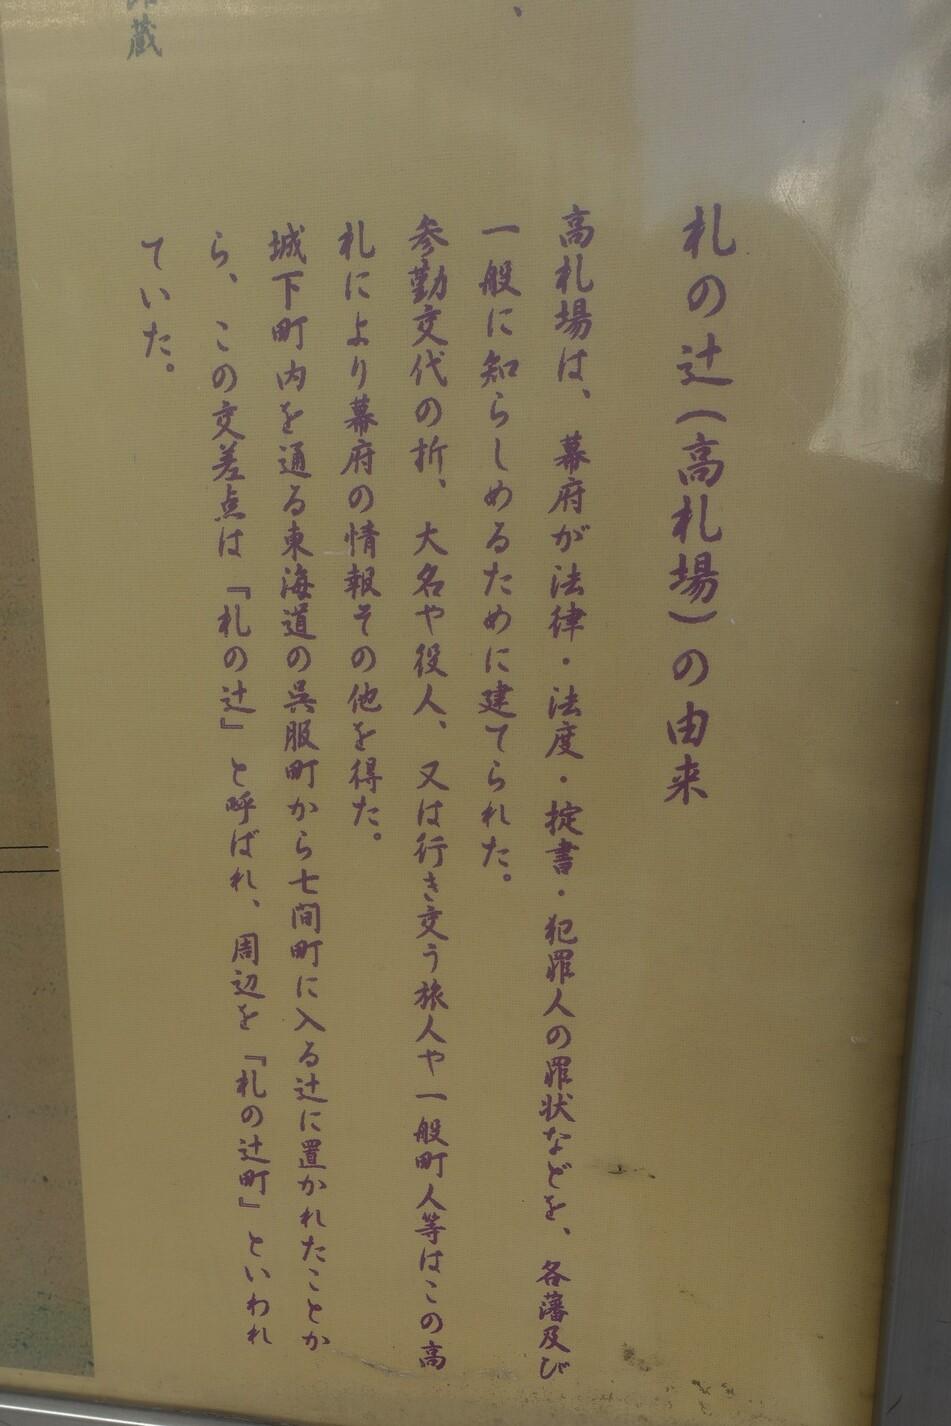 札の辻(高札場)の由来
高札場は、幕府が法律・法度・掟書・犯罪人の罪状などを、各藩及び
一般に知らしめるために建てられた。
参勤交代の折、大名や役人、又は行き交う旅人や一般町人等はこの高
札により幕府の情報その他を得た。
城下町内を通る東海道の呉服町から七間町に入る辻に置かれたことか
ら、この交差点は『札の辻』と呼ばれ、周辺を『札の辻町』といわれ
ていた。
蔵